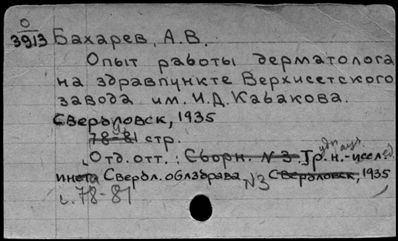 О
3913 Бахарев, А.В.
Опыт работы дерматолога
на здравпункте Верхисетского
завода им. И.Д. Кабакова.
Свердловск, 1935
78-81 стр.
Отд. отт.: Сборн. №3. Тр. н.-иссл.
инста Свердл. облздрава N3 Свердловск, 1935
с. 78-81